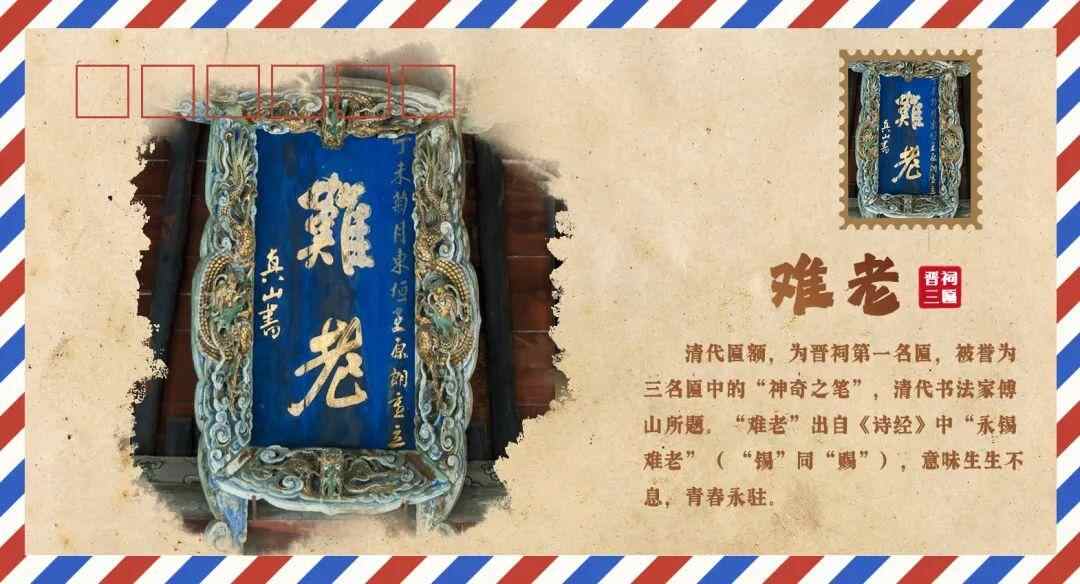 難老
真山書
難老
真山書
难老
晋祠
三匾
清代匾额，为晋祠第一名匾，被誉为
三名匾中的“神奇之笔”，清代书法家傅
山所题。“难老”出自《诗经》中“永锡
难老”（“锡”同“赐”），意味生生不
息，青春永驻。